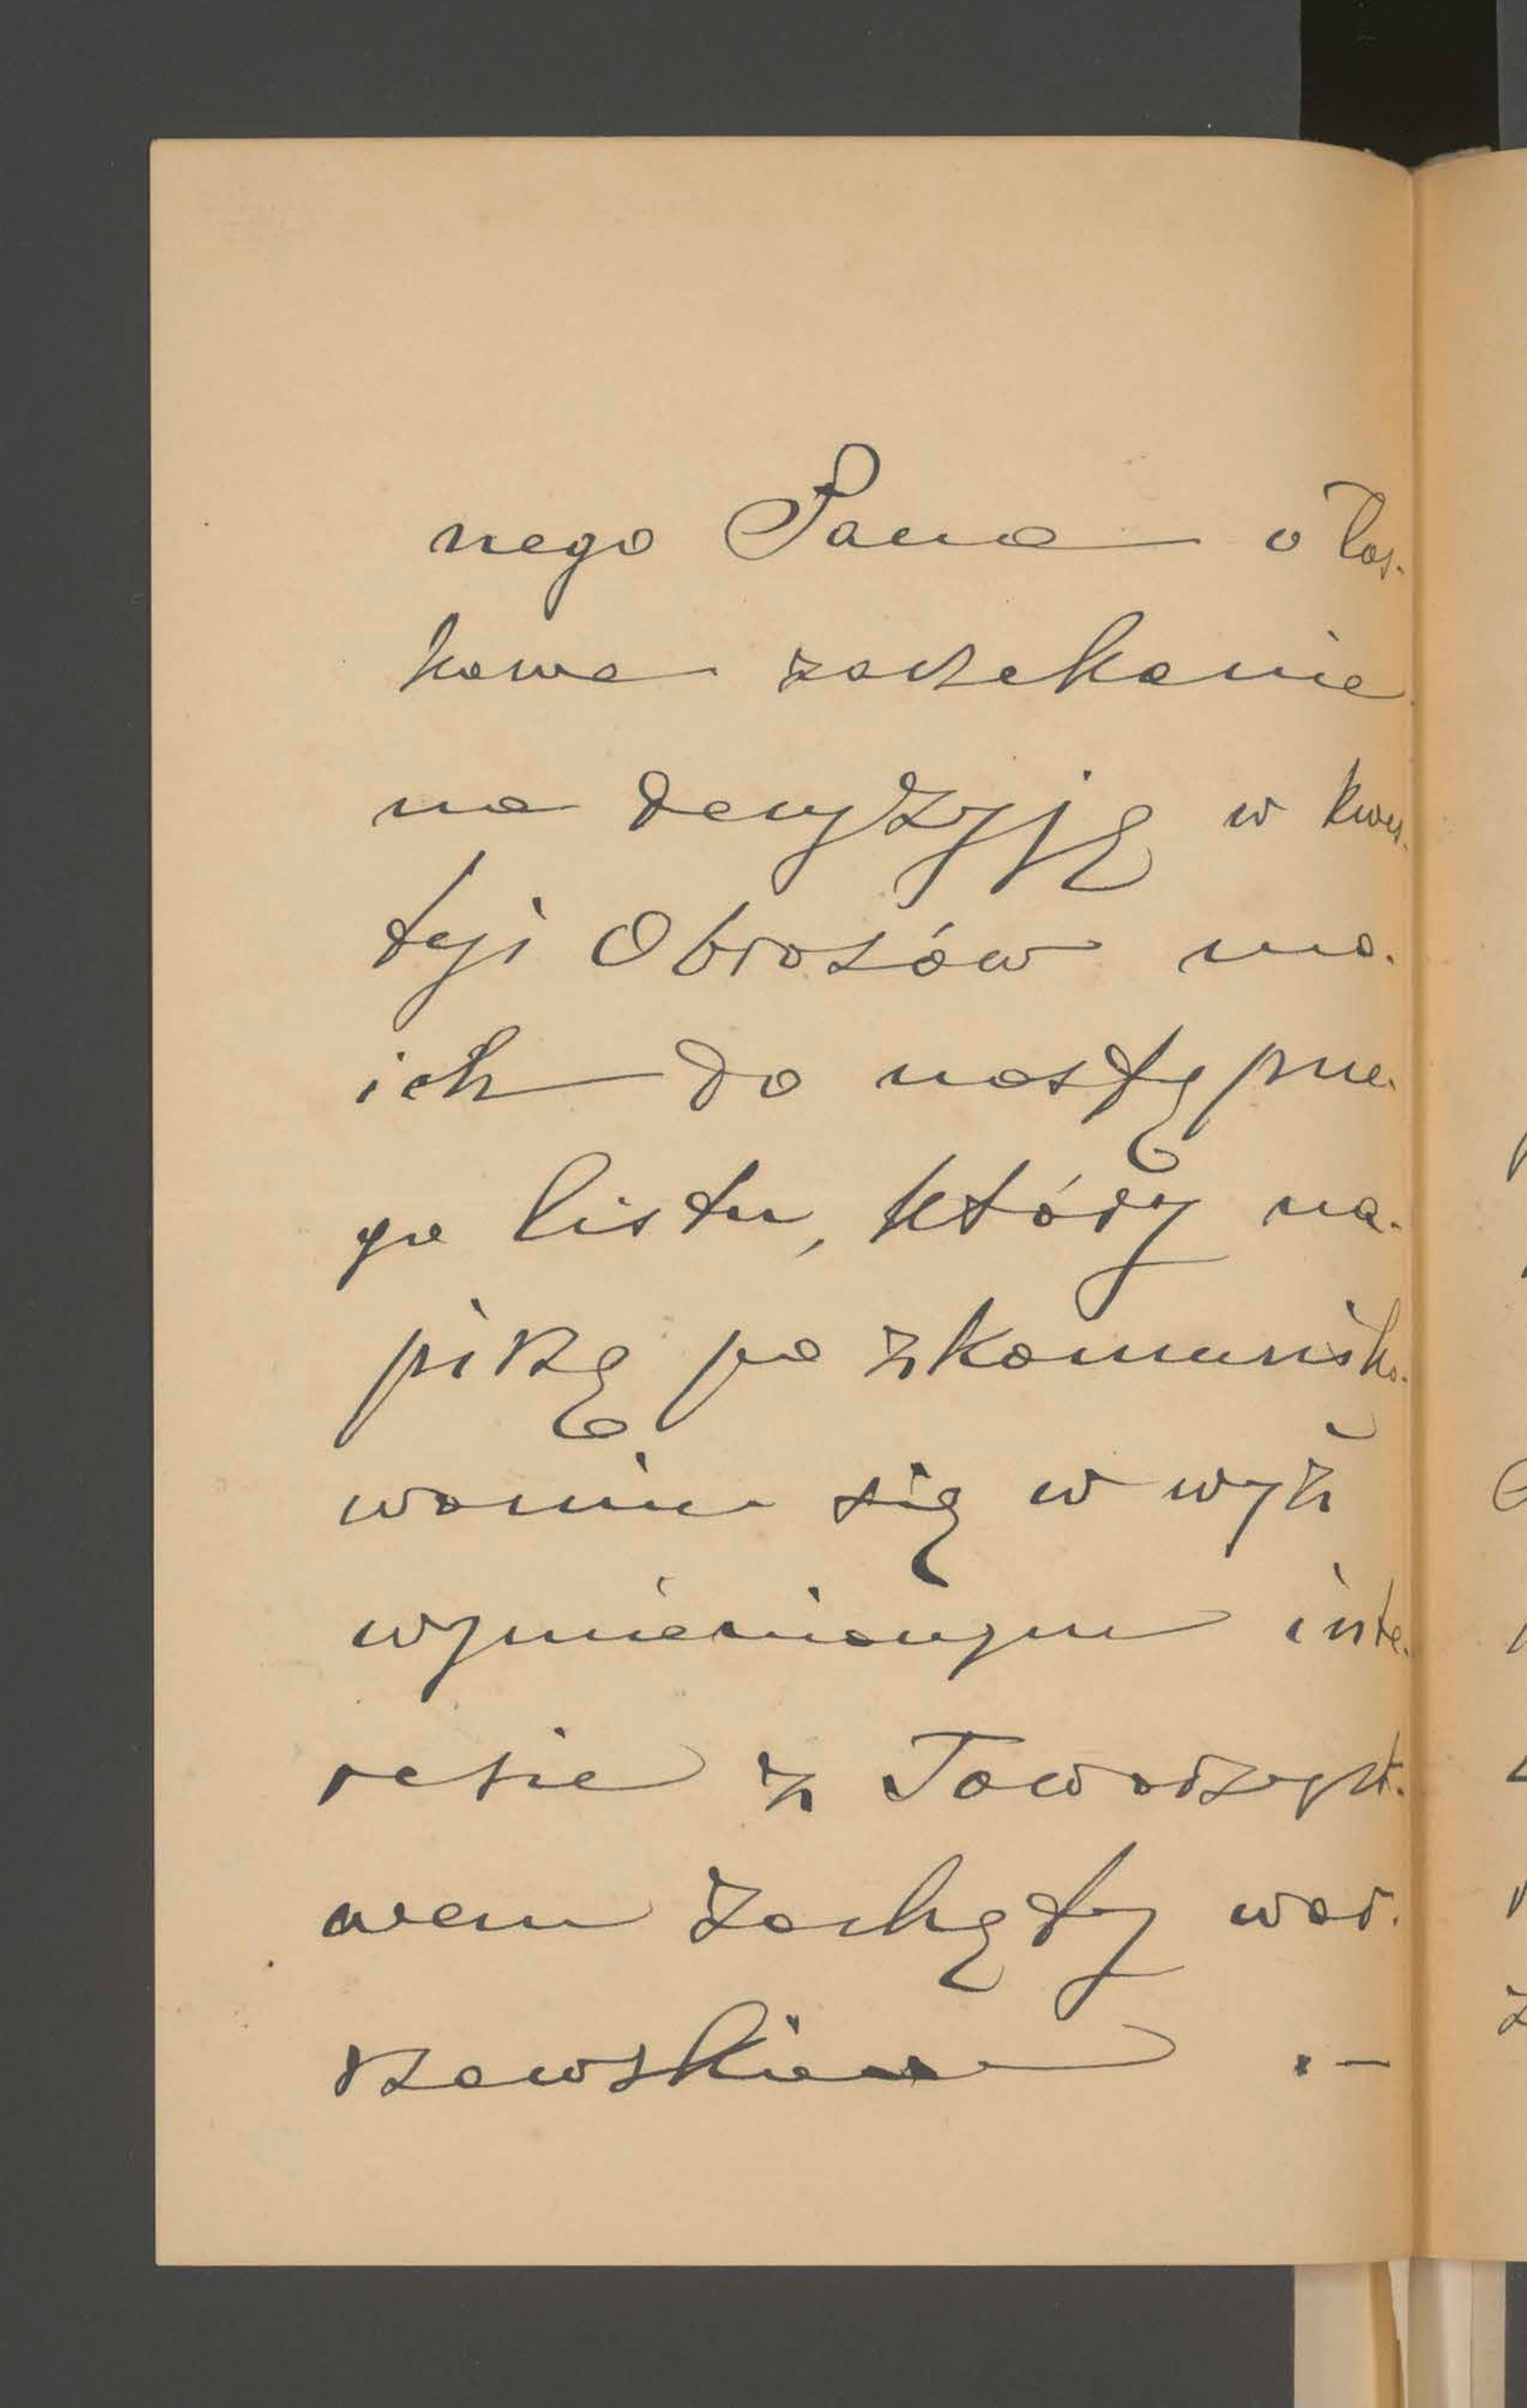 nego Pana o łas-
kawe zaczekanie
na decyzyję w kwes-
tyi Obrazów mo-
ich do następne-
go listu, który na-
piszę po zkomuniko-
waniu się w wyż
wymienionym inte-
resie z Towarzyst-
wem Zachęty war-
szawskiem .—